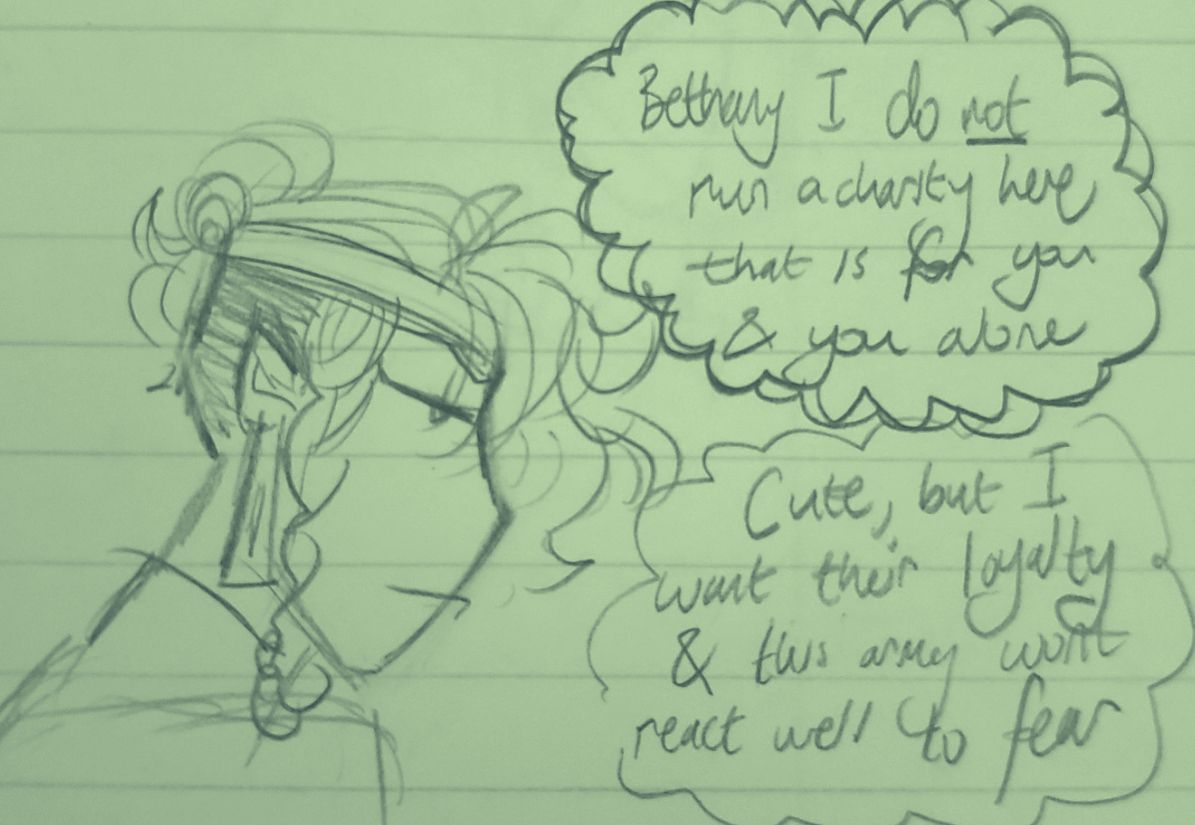 Bethany I do not
run a charity here
that is for you
& you alone
Cute, but I
want their loyalty
& this army wont
react well to fear